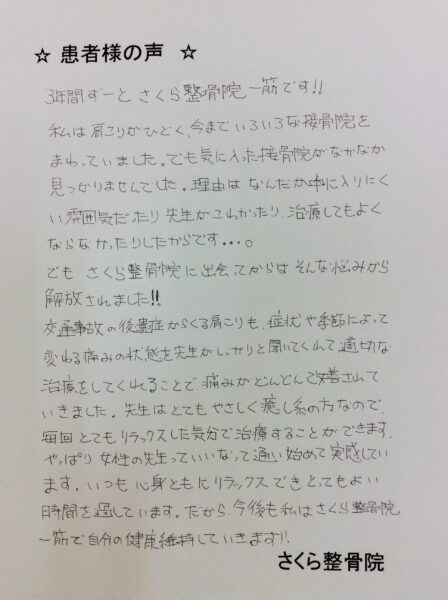 ☆ 患者様の声 ☆
3年間ずーと さくら整骨院 一筋です!!
私は肩こりがひどく、今まで いろいろな接骨院を
まわっていました。でも気に入った接骨院がなかなか
見つかりませんでした。理由は なんだか中に入りにく
い雰囲気だったり 先生がこわかったり、治療してもよく
ならなかったりしたからです・・・。
でも さくら整骨院に出会ってからは そんな悩みから
解放されました!!
交通事故の後遺症からくる肩こりも、症状や季節によって
変わる痛みの状態を先生がしっかりと聞いてくれて 適切な
治療をしてくれることで 痛みがどんどんで改善されて
いきました。先生はとてもやさしく癒し系の方なので、
毎回 とてもリラックスした気分で治療することができます。
やっぱり 女性の先生っていいなって通い始めて実感してい
ます。いつも 心身ともにリラックスでき とてもよい
時間を過しています。だから、今後も私は さくら整骨院
一筋で自分の健康維持していきます!!
さくら整骨院